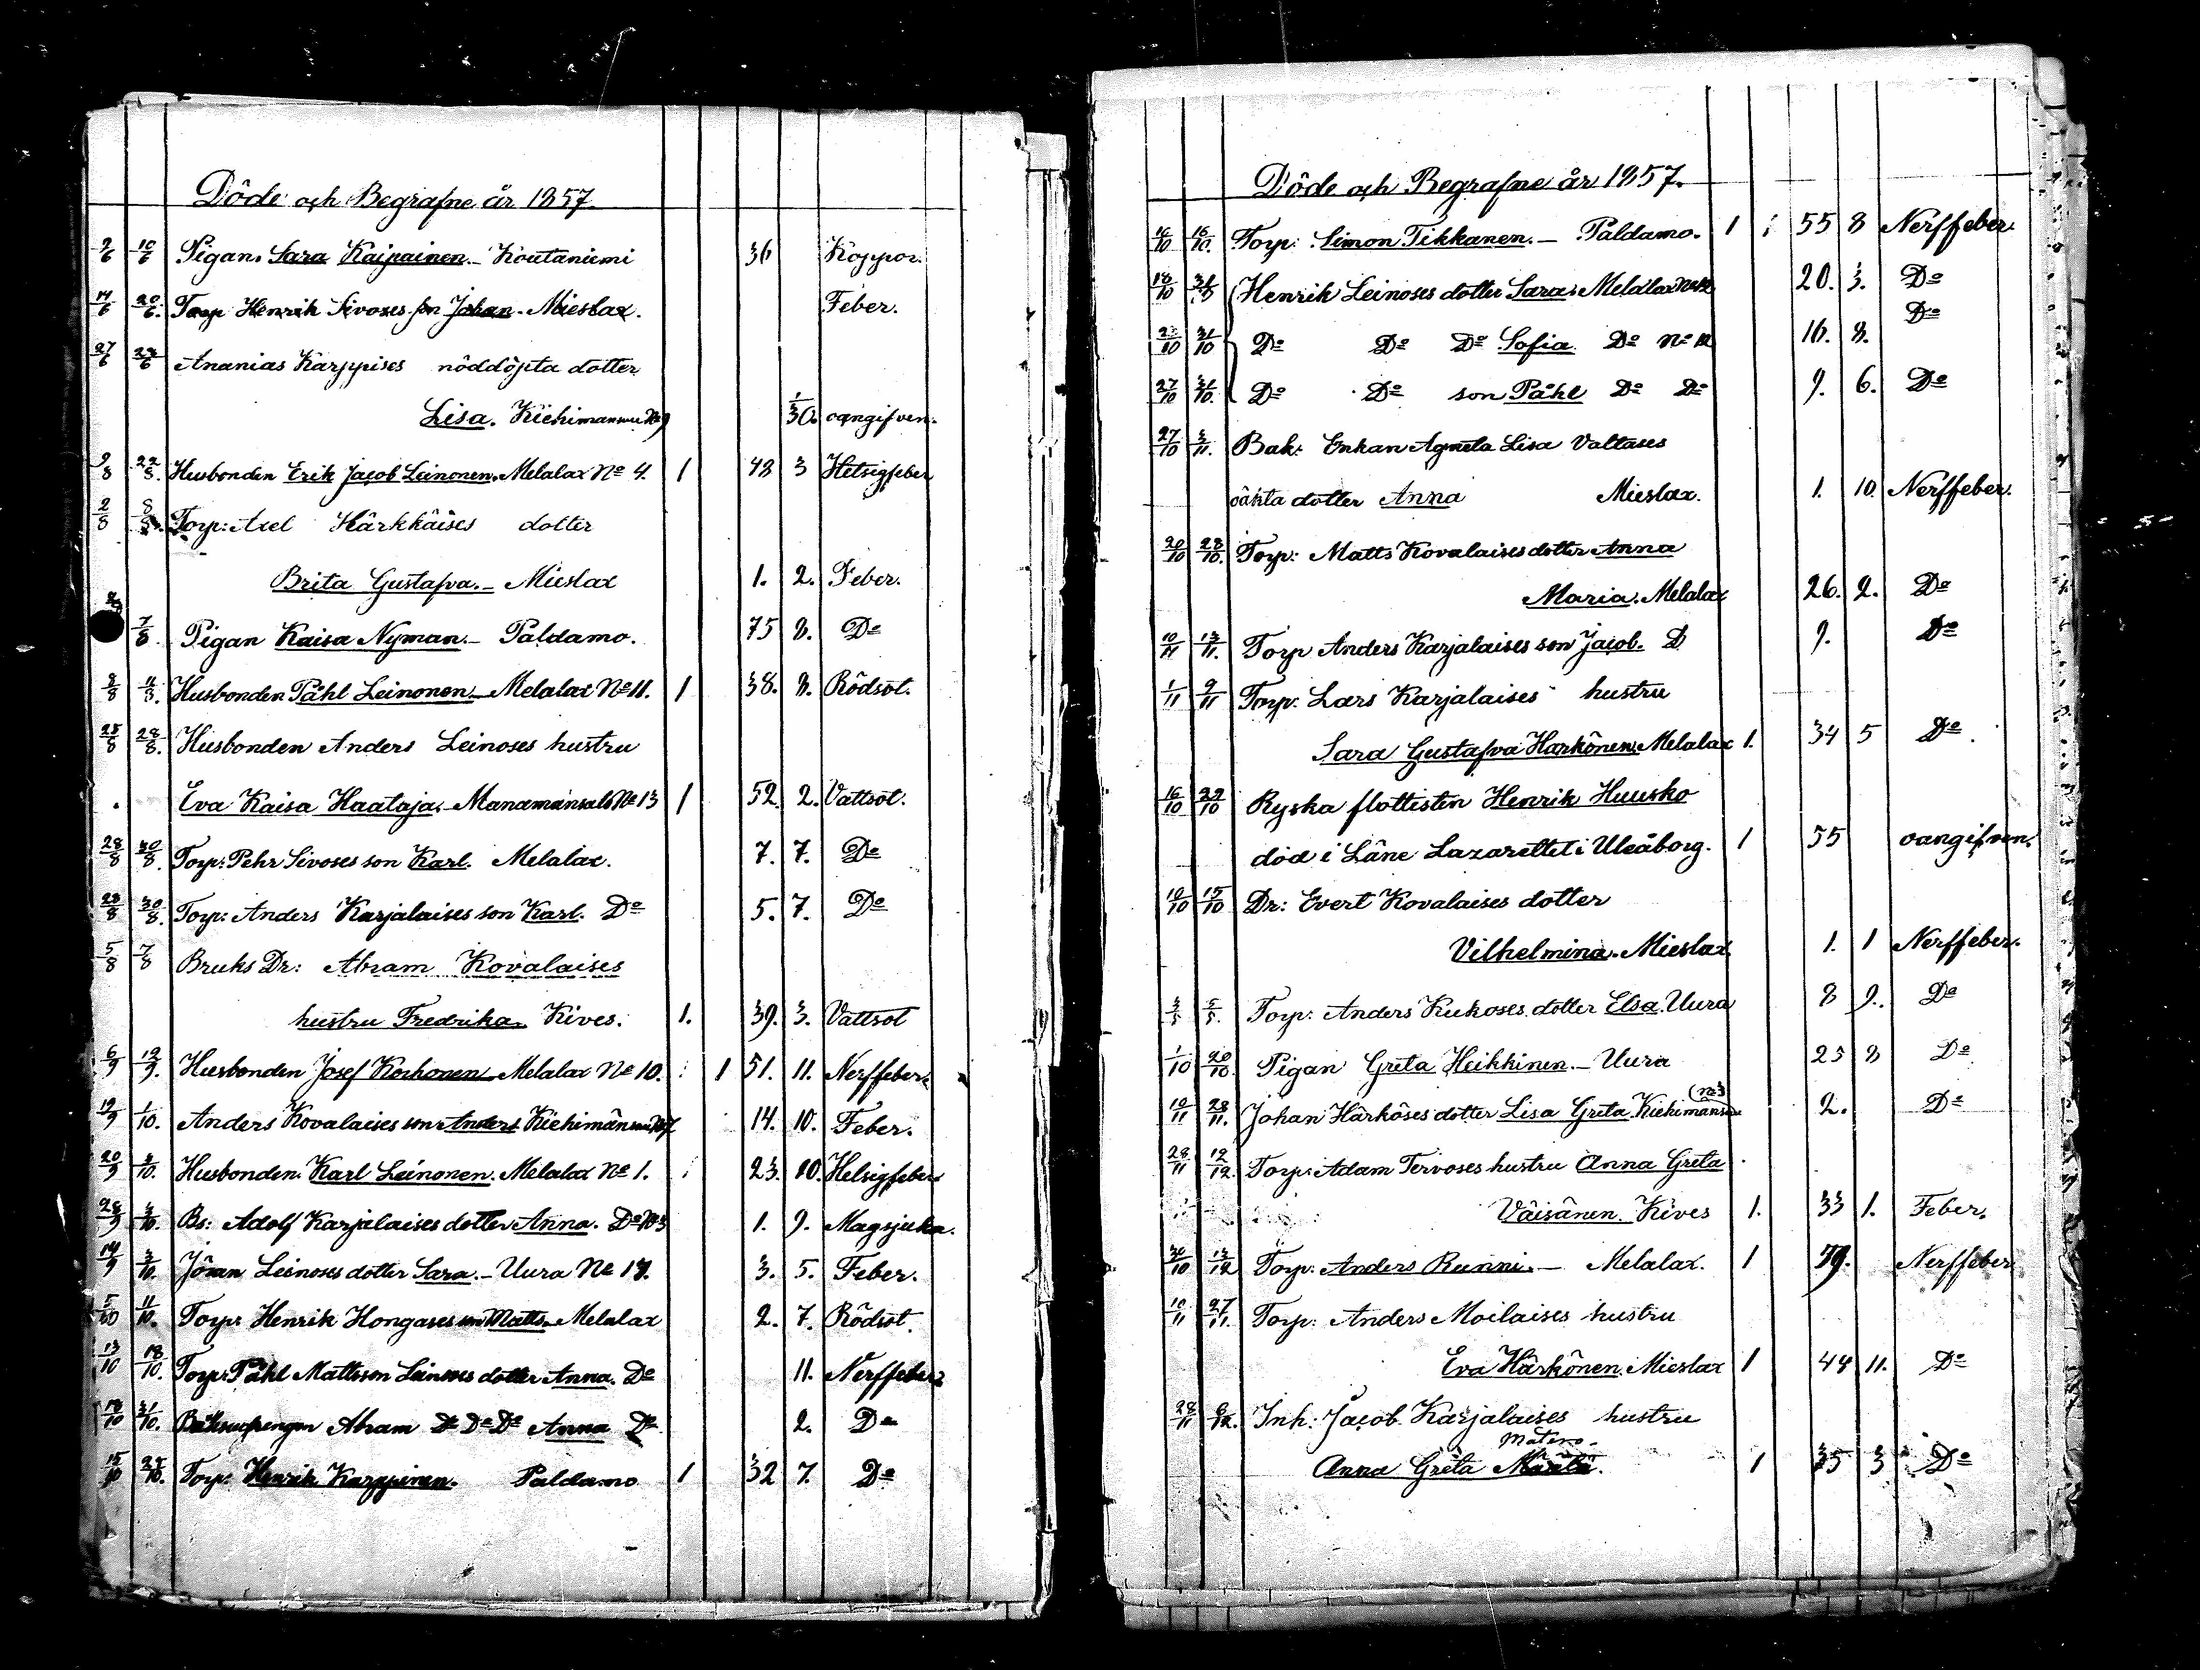 Döde och Begrafne år 1857.
9/6 10/6 Pigan Sara Kaipainen.- Koutaniemi 36 Koppor.
14/6 20/6 Torp Henrik Sivoses son Johan. Mieslax. Feber.
27/6 28/6 Ananias Karppises nöddöpta dotter
Lisa. Kiehimänsuu No 9 1/30. oangifven.
9/8 22/8. Husbonden Erik Jacob Leinonen. Melalax No 4. 1 48 3 Hetsigfeber
2/8 8/8. Torp: Axel Härkkäises dotter
Brita Gustafva.- Mieslax 1. 2. Feber.
7/8. Pigan Kaisa Nyman.- Paldamo. 75 8. Do
8/8 11/8. Husbonden Påhl Leinonen.- Melalax No 11. 1 38. 8. Rödsot.
25/8 28/8. Husbonden Anders Leinoses hustru
Eva Kaisa Haataja. Manamansalo No 13 1 52 2. Vattsot.
28/8 30/8. Torp: Pehr Sivoses son Karl. Melalax. 7. 7. Do
28/8 30/8. Torp: Anders Karjalaises son Karl. Do 5. 7. Do
5/8 7/8 Bruks Dr: Abram Kovalaises
hustru Fredrika Kives. 1. 39. 3. Vattsot
6/9 12/9. Husbonden Josef Korhonen Melalax No 10. 1 51. 11. Nerffeber.
19/9 1/10. Anders Kovalaises son Anders Kiehimänsuu No 7 14. 10. Feber.
20/9 3/10. Husbonden Karl Leinonen. Melalax No 1. 23. 10. Hetsigfeber
28/9 3/10. Bs: Adolf Karjalaises dotter Anna. Do No 3 1. 9. Magsjuka.
14/9 3/10. Jöran Leinoses dotter Sara.- Uura No 17. 3. 5. Feber.
5/10 11/10. Torp: Henrik Hongases son Matts. Melalax 2. 7. Rödsot.
13/10 18/10. Torp: Påhl Mattsson Leinoses dotter Anna. Do 11. Nerffeber
18/10 31/10. Abram Do Do Do Anna Do 2. Do
15/10 24/10. Torp: Henrik Karppinen. Paldamo 1 32 7. Do
Döde och Begrafne år 1857.
10/10 16/10. Torp: Simon Tikkanen.- Paldamo. 1 55 8 Nerffeber.
18/10 31/10 Henrik Leinoses dotter Sara. Melalax No 12 20. 3. Do
31/10 Do Do Do Sofia Do No 12 16. 8. Do
27/10 31/10. Do Do son Påhl Do Do 9. 6. Do
27/10 3/11. Bak: Enkan Agneta Lisa Valtases
oäkta dotter Anna Mieslax. 1. 10. Nerffeber.
20/10 28/10. Torp: Matts Kovalaises dotter Anna
Maria. Melalax 26. 2. Do
10/11 13/11. Torp Anders Karjalaises son Jacob. D 9. Do
1/11 9/11 Torp: Lars Karjalaises hustru
Sara Gustafva Harkönen. Melalax 1. 34 5 Do.
16/10 22/10 Ryska flottisten Henrik Huusko
död i Läne Lazarettet i Uleåborg. 1 55 oangifven.
10/10 15/10 Dr: Evert Kovalaises dotter
Vilhelmina. Mieslax 1. 1 Nerffeber.
3/5 5/5. Torp: Anders Kukoses dotter Elsa. Uura 8 9. Do
1/10 20/10. Pigan Greta Heikkinen.- Uura 25 8 Do
(No 3
19/11 28/11. Johan Härköses dotter Lisa Greta. Kiehimänsuu 2. Do
28/11 12/12. Torp: Adam Tervoses hustru Anna Greta
Väisänen. Kives 1. 33 1. Feber.
30/10 13/12 Torp: Anders Runni.- Melalax. 1 79. Nerffeber
10/11 27/11. Torp: Anders Moilaises hustru
Eva Härkönen. Mieslax 1 44 11. Do
28/11 6/12. Inh: Jacob Karjalaises hustru
Matero.
Anna Greta 1 35 3 Do